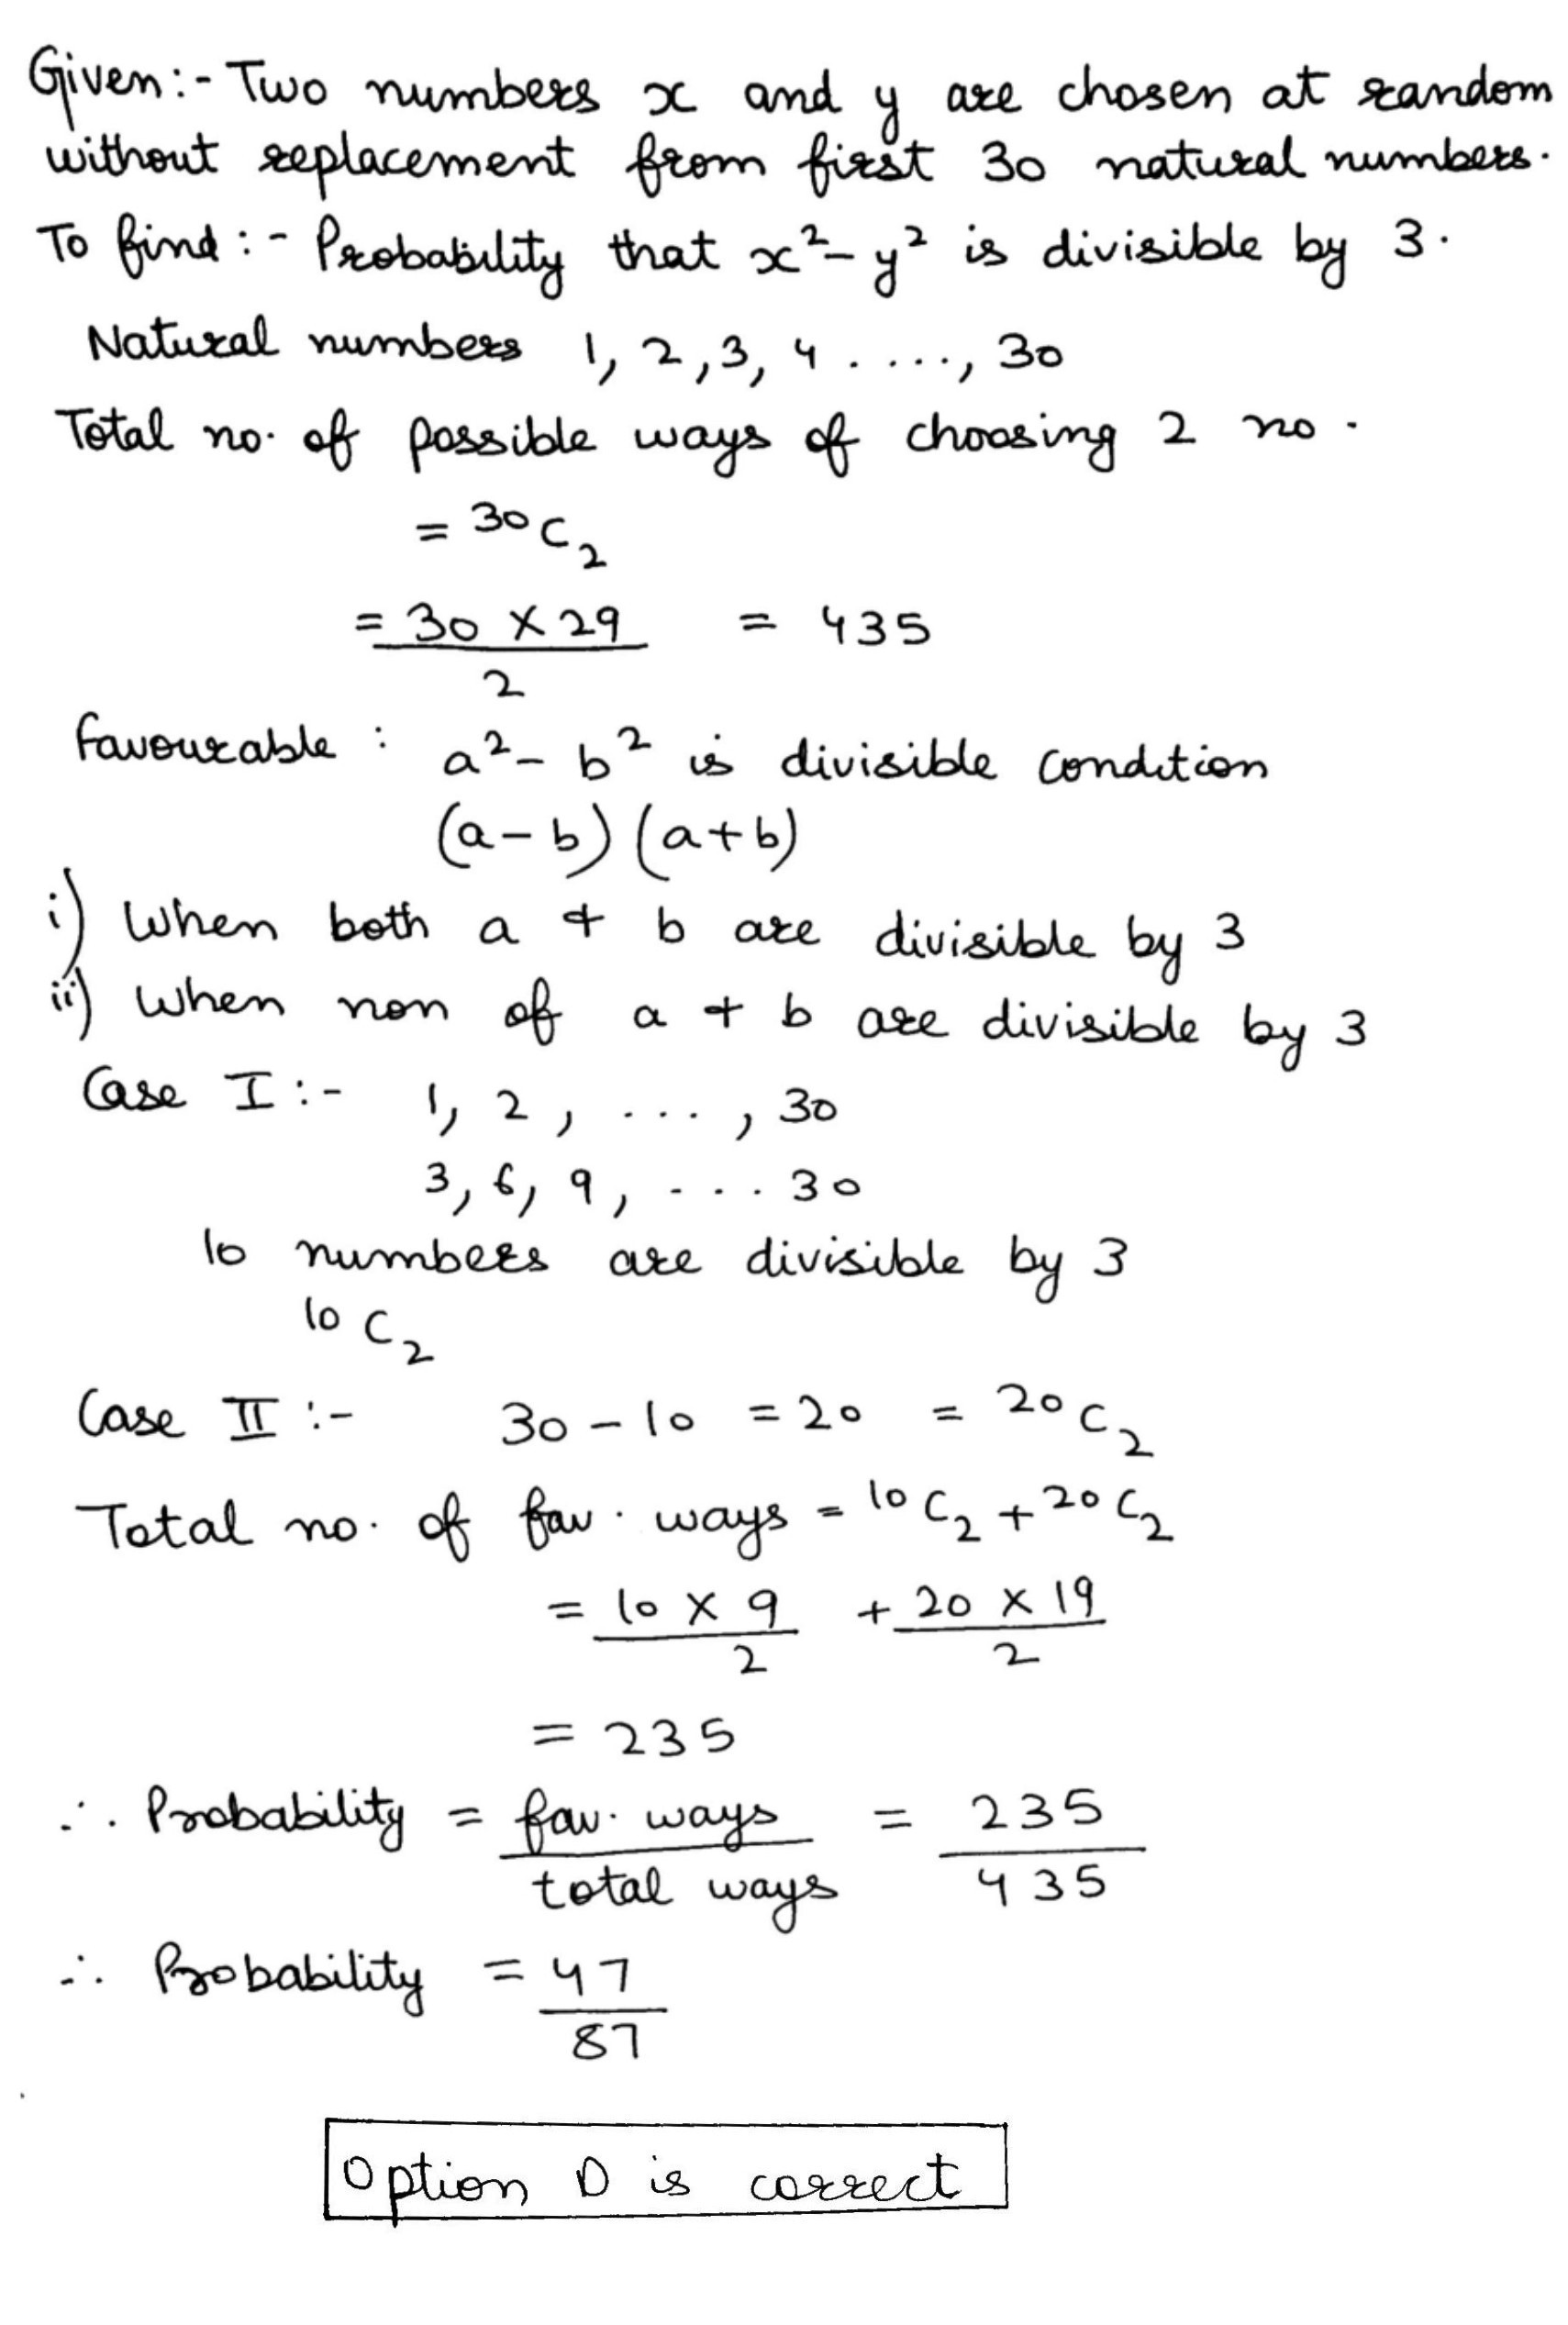 Given:- Two numbers x and y are chosen at random
without replacement from first 30 natural numbers.
To find:- Probability that x²-y² is divisible by 3.
Natural numbers 1, 2, 3, 4 ....., 30
Total no. of possible ways of choosing 2 no.
= ³⁰C₂
= 30 × 29 / 2 = 435
favourable : a² - b² is divisible condition
(a-b) (a+b)
i) When both a + b are divisible by 3
ii) When non of a + b are divisible by 3
Case I :- 1, 2, ..., 30
3, 6, 9, ... 30
10 numbers are divisible by 3
¹⁰C₂
Case II :- 30 - 10 = 20 = ²⁰C₂
Total no. of fav. ways = ¹⁰C₂ + ²⁰C₂
= 10 × 9 / 2 + 20 × 19 / 2
= 235
∴ Probability = fav. ways / total ways = 235 / 435
∴ Probability = 47 / 87
Option D is correct